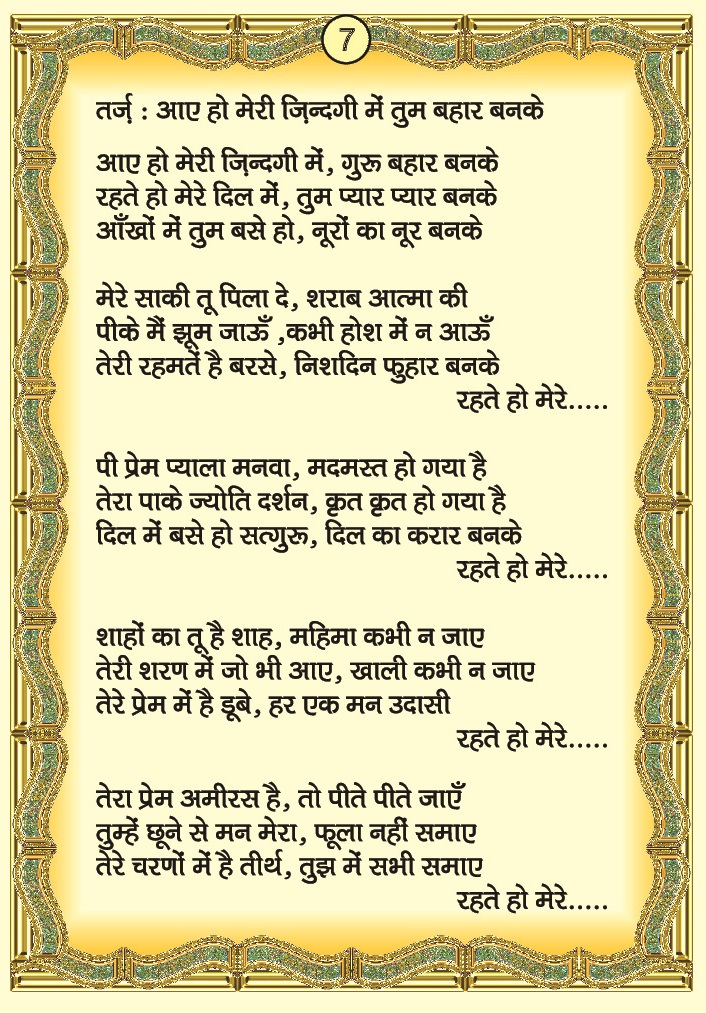 7
तर्ज़ : आए हो मेरी ज़िन्दगी में तुम बहार बनके
आए हो मेरी ज़िन्दगी में, गुरू बहार बनके
रहते हो मेरे दिल में, तुम प्यार प्यार बनके
आँखों में तुम बसे हो, नूरों का नूर बनके
मेरे साकी तू पिला दे, शराब आत्मा की
पीके मैं झूम जाऊँ ,कभी होश में न आऊँ
तेरी रहमतें है बरसे, निशदिन फुहार बनके
रहते हो मेरे.....
पी प्रेम प्याला मनवा, मदमस्त हो गया है
तेरा पाके ज्योति दर्शन, कृत कृत हो गया है
दिल में बसे हो सत्गुरू, दिल का करार बनके
रहते हो मेरे.....
शाहों का तू है शाह, महिमा कभी न जाए
तेरी शरण में जो भी आए, खाली कभी न जाए
तेरे प्रेम में है डूबे, हर एक मन उदासी
रहते हो मेरे.....
तेरा प्रेम अमीरस है, तो पीते पीते जाएँ
तुम्हें छूने से मन मेरा, फूला नहीं समाए
तेरे चरणों में है तीर्थ, तुझ में सभी समाए
रहते हो मेरे.....